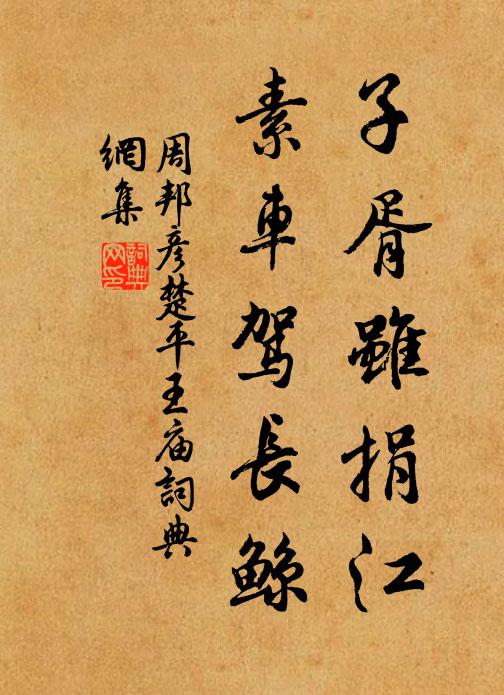 子胥雖捐江
素車駕長鯨
周邦彦楚平王庙詞典
網集
詞典
网印